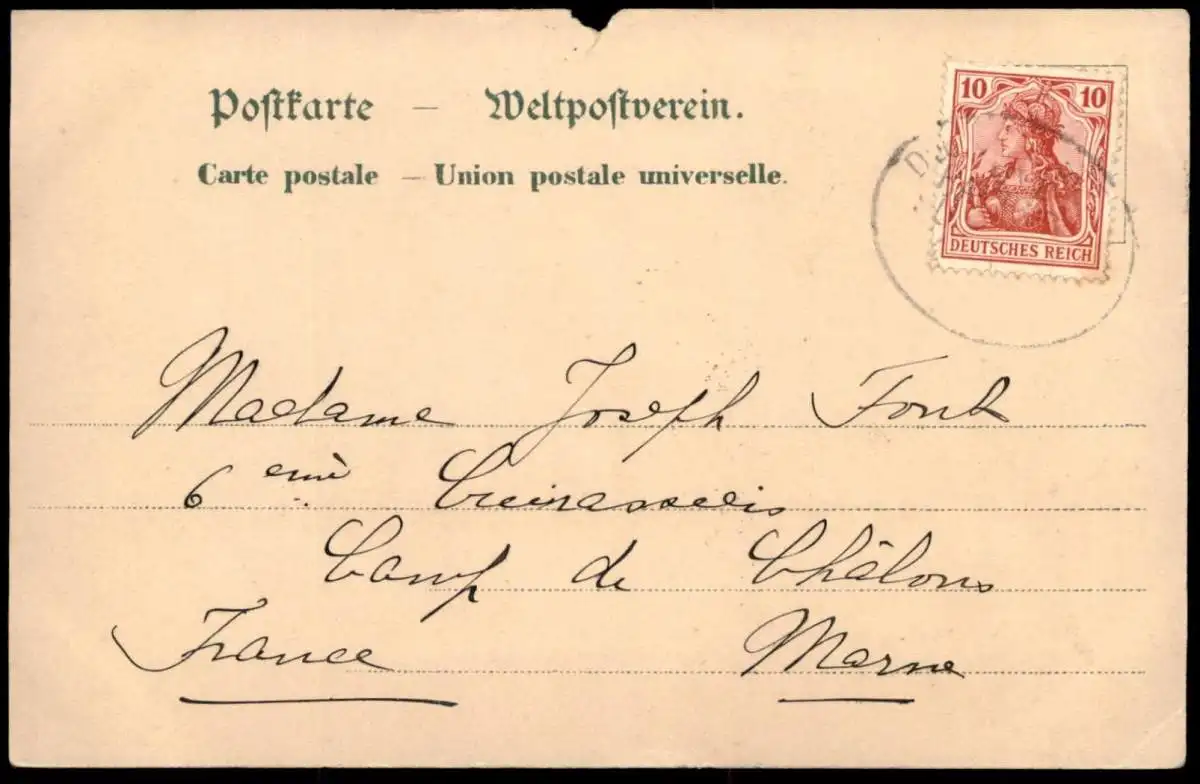 Postkarte — Weltpostverein.
Carte postale — Union postale universelle.
10 10
DEUTSCHES REICH
Madame Joseph Fouk
6 eme Cuirassiers
Camp de Châlons
France Marne